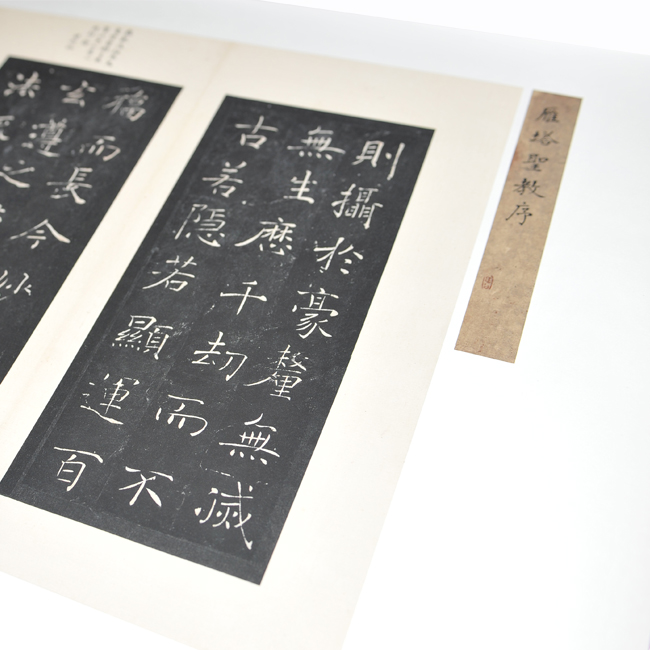 雁塔聖教序
則攝於豪釐無滅
無生歷千劫而不
古若隱若顯運百
福而長今妙
玄遵之
法